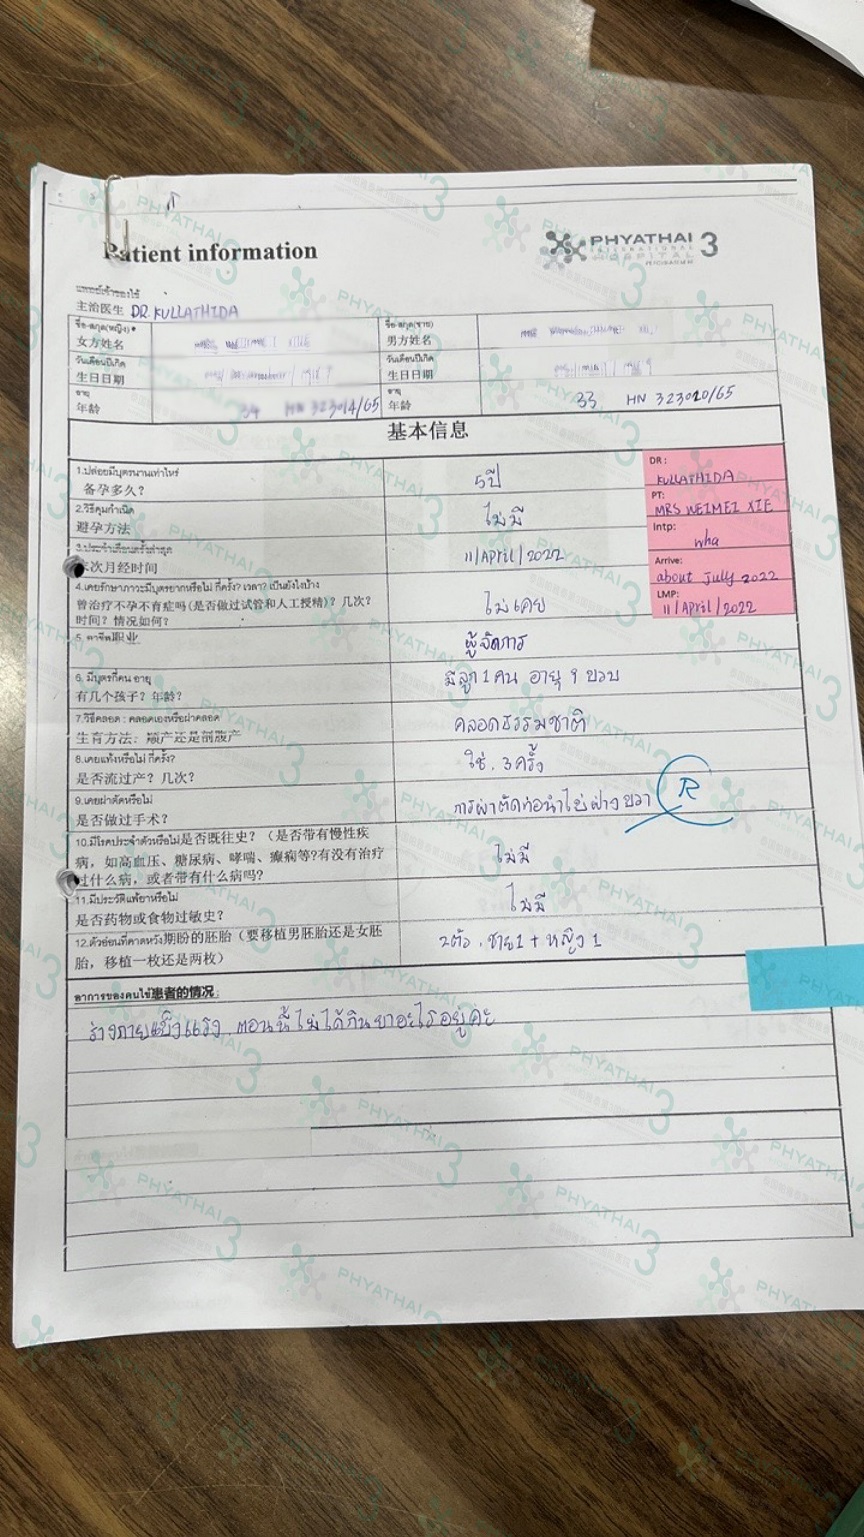 Patient information
PHYATHAI 3
INTERNATIONAL
HOSPITAL
แพทย์เจ้าของไข้
主治医生 DR. KULLATHIDA
ชื่อ-สกุล(หญิง)
女方姓名
ชื่อ-สกุล(ชาย)
男方姓名
วันเดือนปีเกิด
生日日期
วันเดือนปีเกิด
生日日期
อายุ
年龄 34 HN 323014/65
อายุ
年龄 33 HN 323020/65
基本信息
1.ปล่อยมีบุตรนานเท่าไหร่
备孕多久?
5ปี
2.วิธีคุมกำเนิด
避孕方法
ไม่มี
3.ประจำเดือนครั้งล่าสุด
末次月经时间
11/April/2022
4.เคยรักษาภาวะมีบุตรยากหรือไม่ กี่ครั้ง? เวลา? เป็นยังไงบ้าง
曾治疗不孕不育症吗(是否做过试管和人工授精)? 几次?
时间? 情况如何?
ไม่เคย
5. อาชีพ职业
ผู้จัดการ
6. มีบุตรกี่คน อายุ
有几个孩子? 年龄?
มีลูก 1 คน อายุ 9 ขวบ
7.วิธีคลอด : คลอดเองหรือผ่าคลอด
生育方法: 顺产还是剖腹产
คลอดธรรมชาติ
8.เคยแท้งหรือไม่ กี่ครั้ง?
是否流过产? 几次?
ใช่, 3 ครั้ง
9.เคยผ่าตัดหรือไม่
是否做过手术?
การผ่าตัดท่อนำไข่ข้างขวา
R
10.มีโรคประจำตัวหรือไม่是否既往史? (是否带有慢性疾
病, 如高血压、糖尿病、哮喘、癫痫等?有没有治疗
过什么病, 或者带有什么病吗?
ไม่มี
11.มีประวัติแพ้ยาหรือไม่
是否药物或食物过敏史?
ไม่มี
12.ตัวอ่อนที่คาดหวัง期盼的胚胎 (要移植男胚胎还是女胚
胎, 移植一枚还是两枚)
2ตัว, ชาย 1 + หญิง 1
DR :
KULLATHIDA
PT:
MRS WEIMEI XIE
Intp:
wha
Arrive:
about July 2022
LMP:
11/April/2022
อาการของคนไข้患者的情况:
ร่างกายแข็งแรง, ตอนนี้ไม่ได้กินยาอะไรอยู่คะ